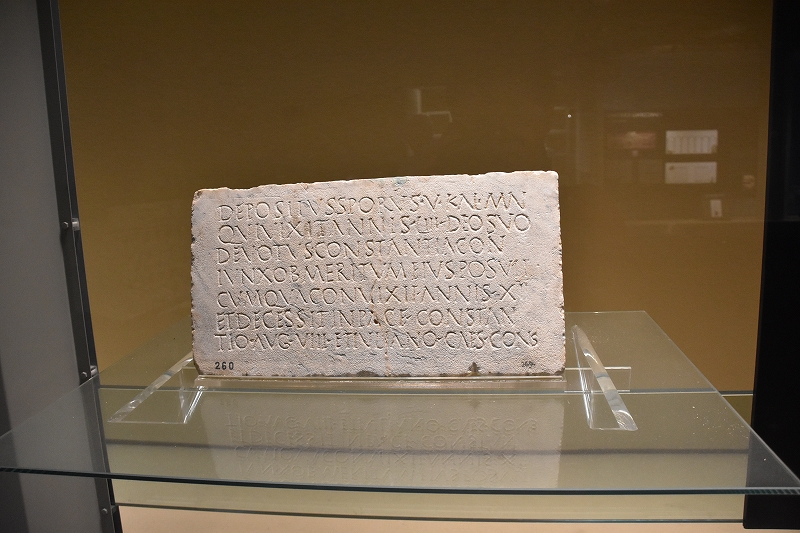 DEPOSITVS SPORVS·V·KAL·MAI
QVI VIXIT ANNIS·LIII·DEO SVO
DEVOTVS CONSTANTIA CON
IVNX OB MERITVM EIVS POSVIT
CVM QVA CONVIXIT ANNIS·X
ET DECESSIT IN PACE·CONSTAN
TIO·AVG·VIII·ET IVLIANO·CAES·CONS
260